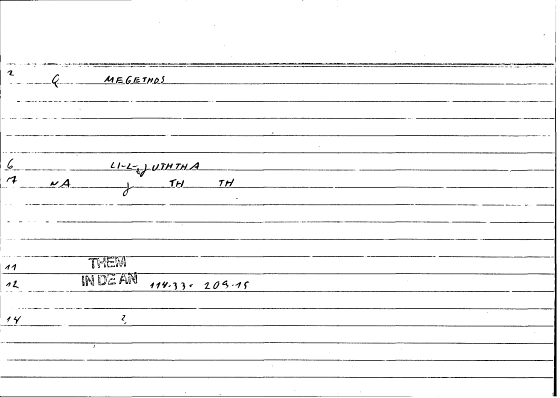 2 Q MEGETHOS
6 LI-L-JUTHTHA
7 NA J TH TH
11 THEM
12 IN DE AN 114.33. 209.15
14 2,